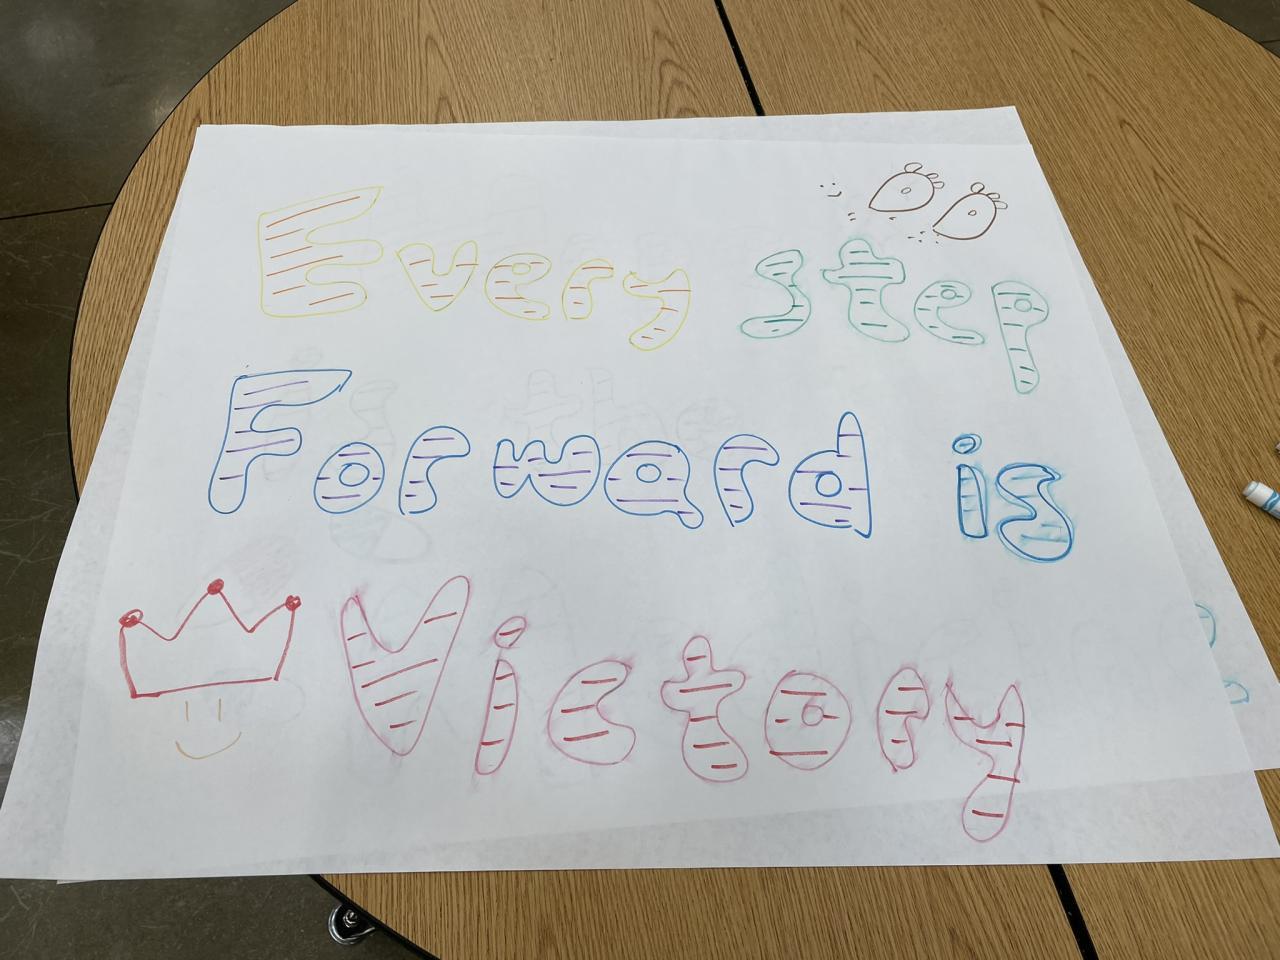 Every step
Forward is
Victory